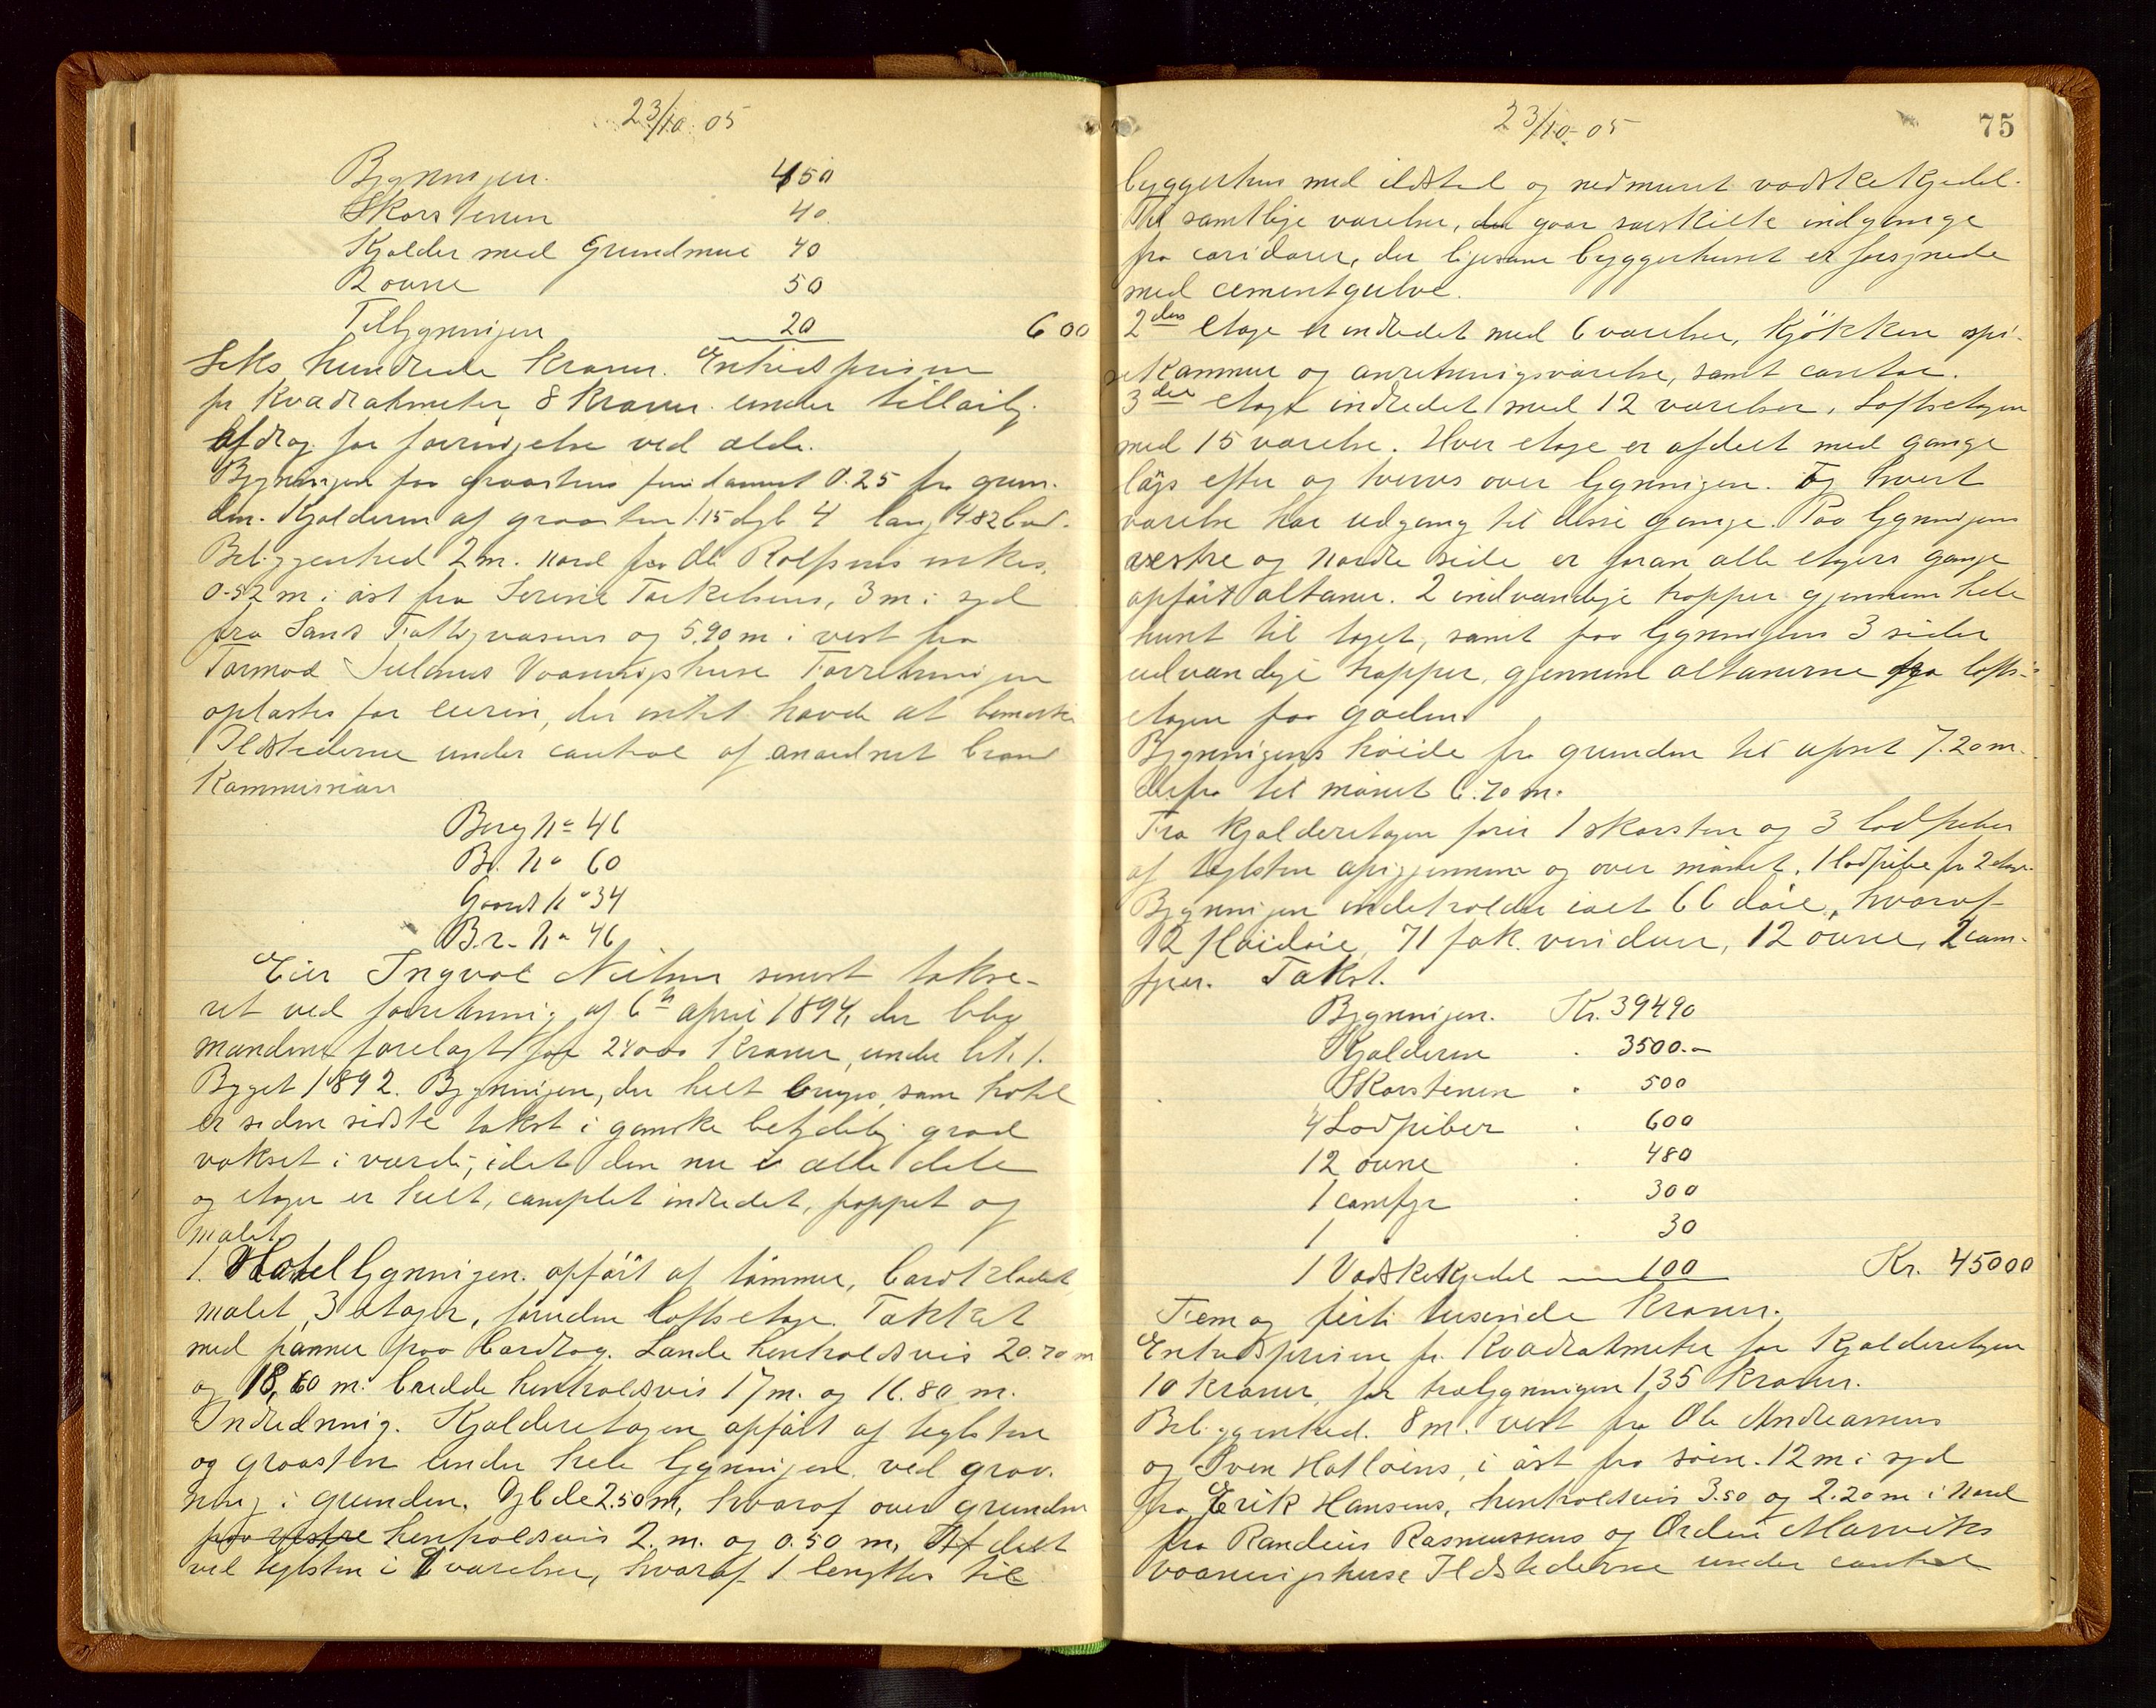 23/10 05
Bygningen. 450
Skorstenen 40
Kjælder med Grundmur 40
2 ovne 50
Tilbygningen 20 600
Seks hundrede kroner. Enhedsprisen
pr kvadratmeter 8 kroner under tillæg
afdrag for forringelse ved ælde.
Bygningen paa graastens fundament 0.25 fra grun-
den. Kjælderen af graasten 1.15 dyb 4 lang 4.82 bred.
Beliggenhed 2 m. nord fra Ole Rolfsens enkes,
0.52 m i øst fra Serine Torkelsens, 3 m i syd
fra Sands Fattigvæsens og 5.90 m i vest fra
Tormod Vaaningshuse Forretningen
oplæstes for eieren, der intet havde at bemærke
Ildstederne under control af anordnet brand
kommission
Byg No 46
Br. No 60
Gaards No 34
B.r. No 46
Eier Ingval Nilsen senest takse-
ret ved forretning af 6te april 1894, der blev
mændene forelagt for 24000 kroner, under litr. 1.
Bygget 1892. Bygningen, der helt bruges som hotel
er siden sidste takst i ganske betydelig grad
vokset i værdi, idet den nu i alle dele
og etager er helt, complet indredet, pappet og
malet.
1. Hotelbygningen. opført af tømmer, bordklædet
malet, 3 etager, foruden loftsetage. Taktet
med panner paa bordtag. Længde henholdsvis 20.70 m
og 18,60 m. bredde henholdsvis 17 m. og 16.80 m.
Indredning. Kjælderetagen opført af teglsten
og graasten under hele bygningen ved grav-
ning i grunden. Dybde 2.50 m, hvoraf over grunden
paa vestre henholdsvis 2. m. og 0.50 m. Afdelt
ved teglsten i værelser, hvoraf 1 benyttes til
23/10-05 75
byggerhus med ildsted og nedmuret vadskekjedel.
Til samtlige værelser, der gaar særskilte indgange
fra coridorer, der ligesom byggerhuset er forsynede
med cementgulve.
2den etage er indredet med 6 værelser, kjøkken spi-
sekammer og anretningsværelse, samt contor.
3die etage indredet med 12 værelser, Loftsetagen
med 15 værelser. Hver etage er afdelt med gange
langs efter og tvers over bygningen. Og hvert
værelse har udgang til disse gange. Paa bygningens
vestre og nordre side er foran alle etagers gange
opført altaner. 2 indvendige trapper gjennem hele
huset til taget, samt paa bygningens 3 sider
udvendige trapper, gjennem altanerne fra lofts-
etagen paa gaden.
Bygningens høide fra grunden til opset 7.20 m.
derfra til mønet 6.70 m.
Fra kjælderetagen fører 1 skorsten og 3 lodpiber
af teglsten opigjennem og over mønet. 1 lodpibe fra 2 etage.
Bygningen indeholder ialt 66 døre, hvoraf
12 fløidøre, 71 fak. vinduer, 12 ovne, 2 com-
fyrer. Takst.
Bygningen. Kr. 39490
Kjælderen . 3500.-
Skorstenen . 500
4 Lodpiber . 600
12 ovne . 480
1 comfyr . 300
1 . 30
1 Vadskekjedel 100 Kr. 45000
Fem og førti tusinde kroner.
Enhedsprisen pr. kvadratmeter for kjælderetagen
10 kroner, for træbygningen 135 kroner.
Beliggenhed. 8 m. vest fra Ole Andreassens
og Sven Hatløiens, i øst fra søen. 12 m i syd
fra Erik Hansens, henholdsvis 3.50 og 2.20 m i nord
fra Randeus Rasmussens og Marviks
vaaningshuse Ildstederne under control